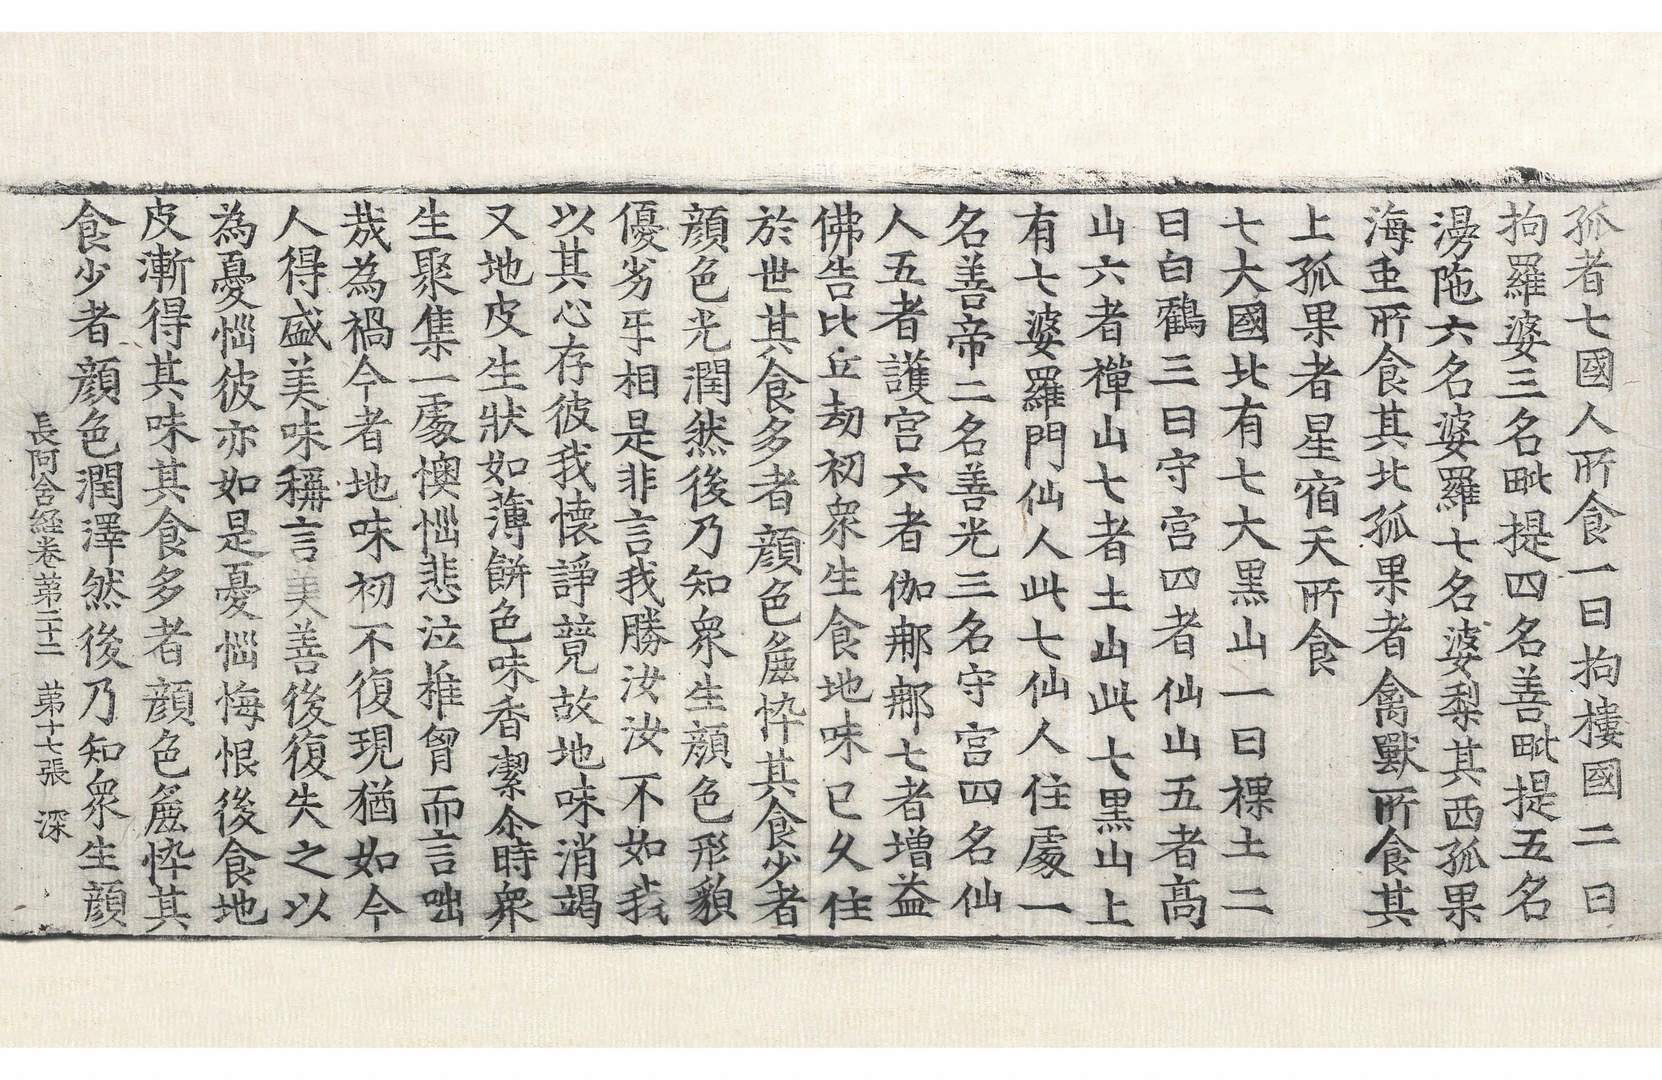 孤者七國人所食一曰拘樓國二曰
拘羅婆三名毗提四名善毗提五名
漫陁六名婆羅七名婆梨其西孤果
海虫所食其北孤果者禽獸所食其
上孤果者星宿天所食
七大國北有七大黑山一曰裸土二
曰白鶴三曰守宮四者仙山五者高
山六者禪山七者土山此七黑山上
有七婆羅門仙人此七仙人住處一
名善帝二名善光三名守宮四名仙
人五者護宮六者伽郍郍七者增益
佛告比丘劫初衆生食地味已久住
於世其食多者顔色麁悴其食少者
顔色光潤然後乃知衆生顔色形貌
優劣㸦相是非言我勝汝汝不如我
以其心存彼我懷諍競故地味消竭
又地皮生狀如薄餅色味香潔尒時衆
生聚集一處懊惱悲泣椎胷而言咄
哉為禍今者地味初不復現猶如今
人得盛美味稱言美善後復失之以
為憂惱彼亦如是憂惱悔恨後食地
皮漸得其味其食多者顔色麁悴其
食少者顔色潤澤然後乃知衆生顔
長阿含經卷第二十二 第十七張 深